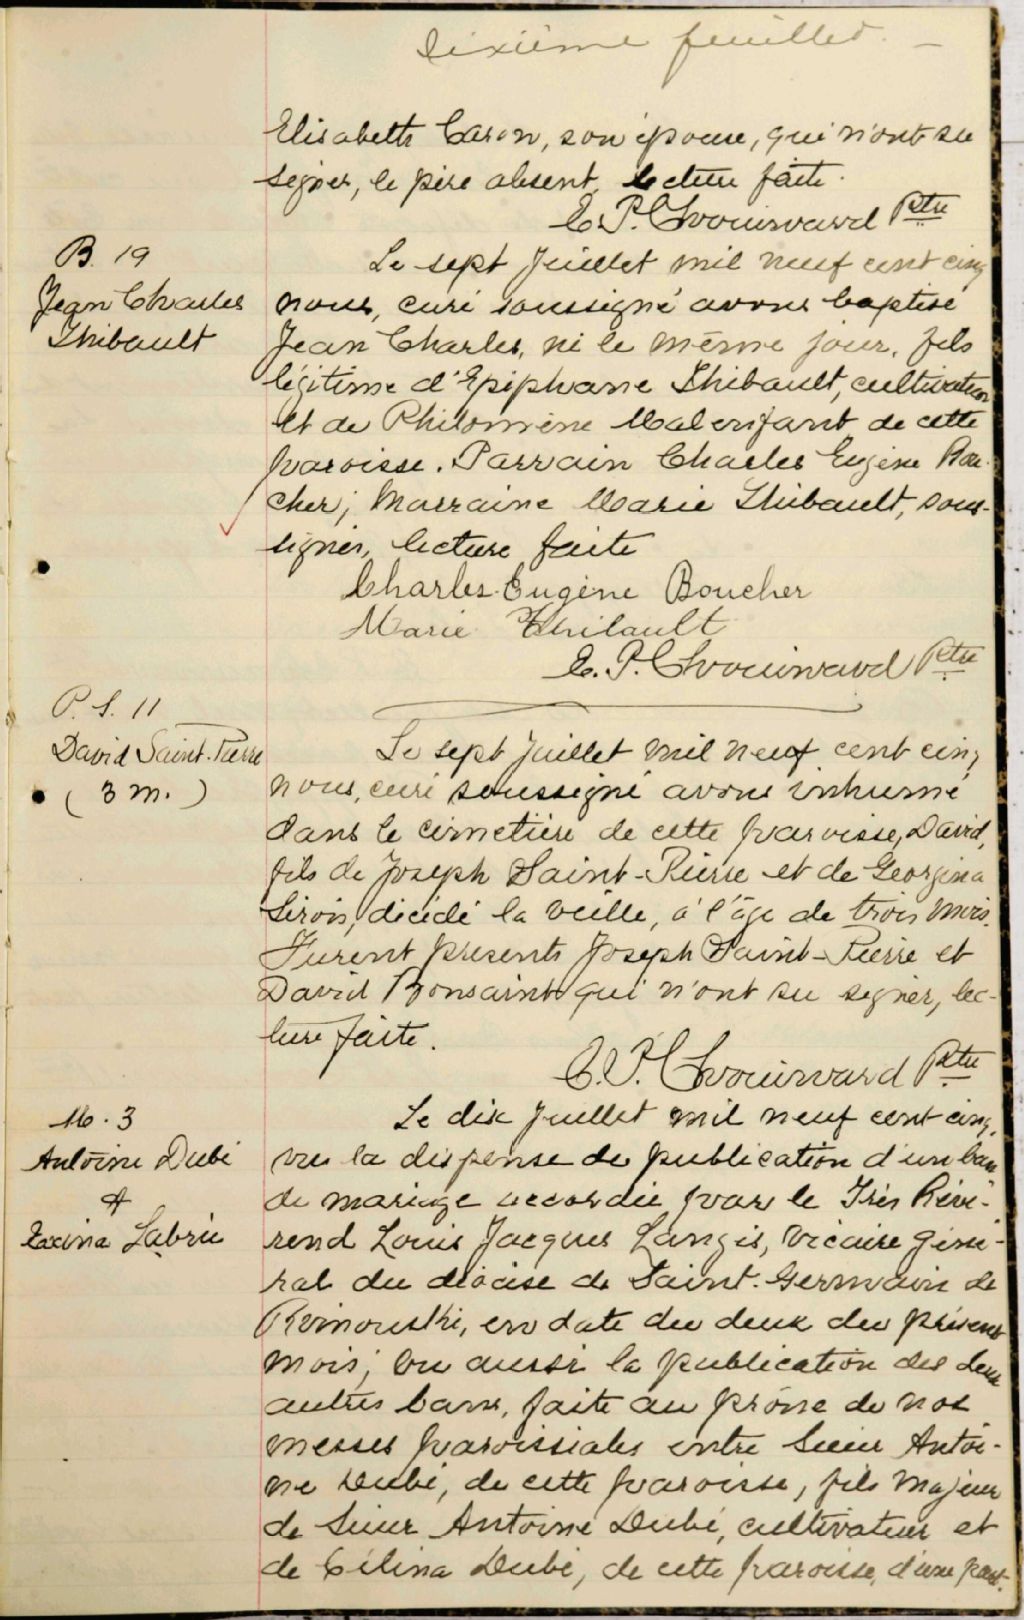 Dixième feuillet. —
Elisabeth Caron, son épouse, qui n'ont su
signer, le père absent, lecture faite.
E. P. Chouinard Ptre
B. 19
Jean Charles
Thibault
Le sept Juillet mil neuf cent cinq
nous, curé soussigné avons baptisé
Jean Charles, né le même jour, fils
légitime d'Epiphane Thibault, cultivateur
et de Philomène Malenfant de cette
paroisse. Parrain Charles Eugène Bou-
cher; Marraine Marie Thibault, sous-
signés, lecture faite
Charles-Eugène Boucher
Marie Thibault
E. P. Chouinard Ptre
P. S. 11
David Saint-Pierre
( 3 m. )
Le sept Juillet mil neuf cent cinq,
nous, curé soussigné avons inhumé
dans le cimetière de cette paroisse, David,
fils de Joseph Saint-Pierre et de Georgina
Sirois, décédé la veille, à l'âge de trois mois.
Furent présents Joseph Saint-Pierre et
David Bonsaint qui n'ont su signer, lec-
ture faite.
E. P. Chouinard Ptre
M. 3
Antoine Dubé
&
Labrie
Le dix Juillet mil neuf cent cinq,
vu la dispense de publication d'un ban
de mariage accordée par le Très Révé-
rend Louis Jacques Langis, Vicaire géné-
ral du diocèse de Saint-Germain de
Rimouski, en date du deux du présent
mois; vu aussi la publication des deux
autres bans, faite au prône de nos
messes paroissiales entre Sieur Antoi-
ne Dubé, de cette paroisse, fils majeur
de Sieur Antoine Dubé, cultivateur et
de Célina Dubé, de cette paroisse, d'une part.